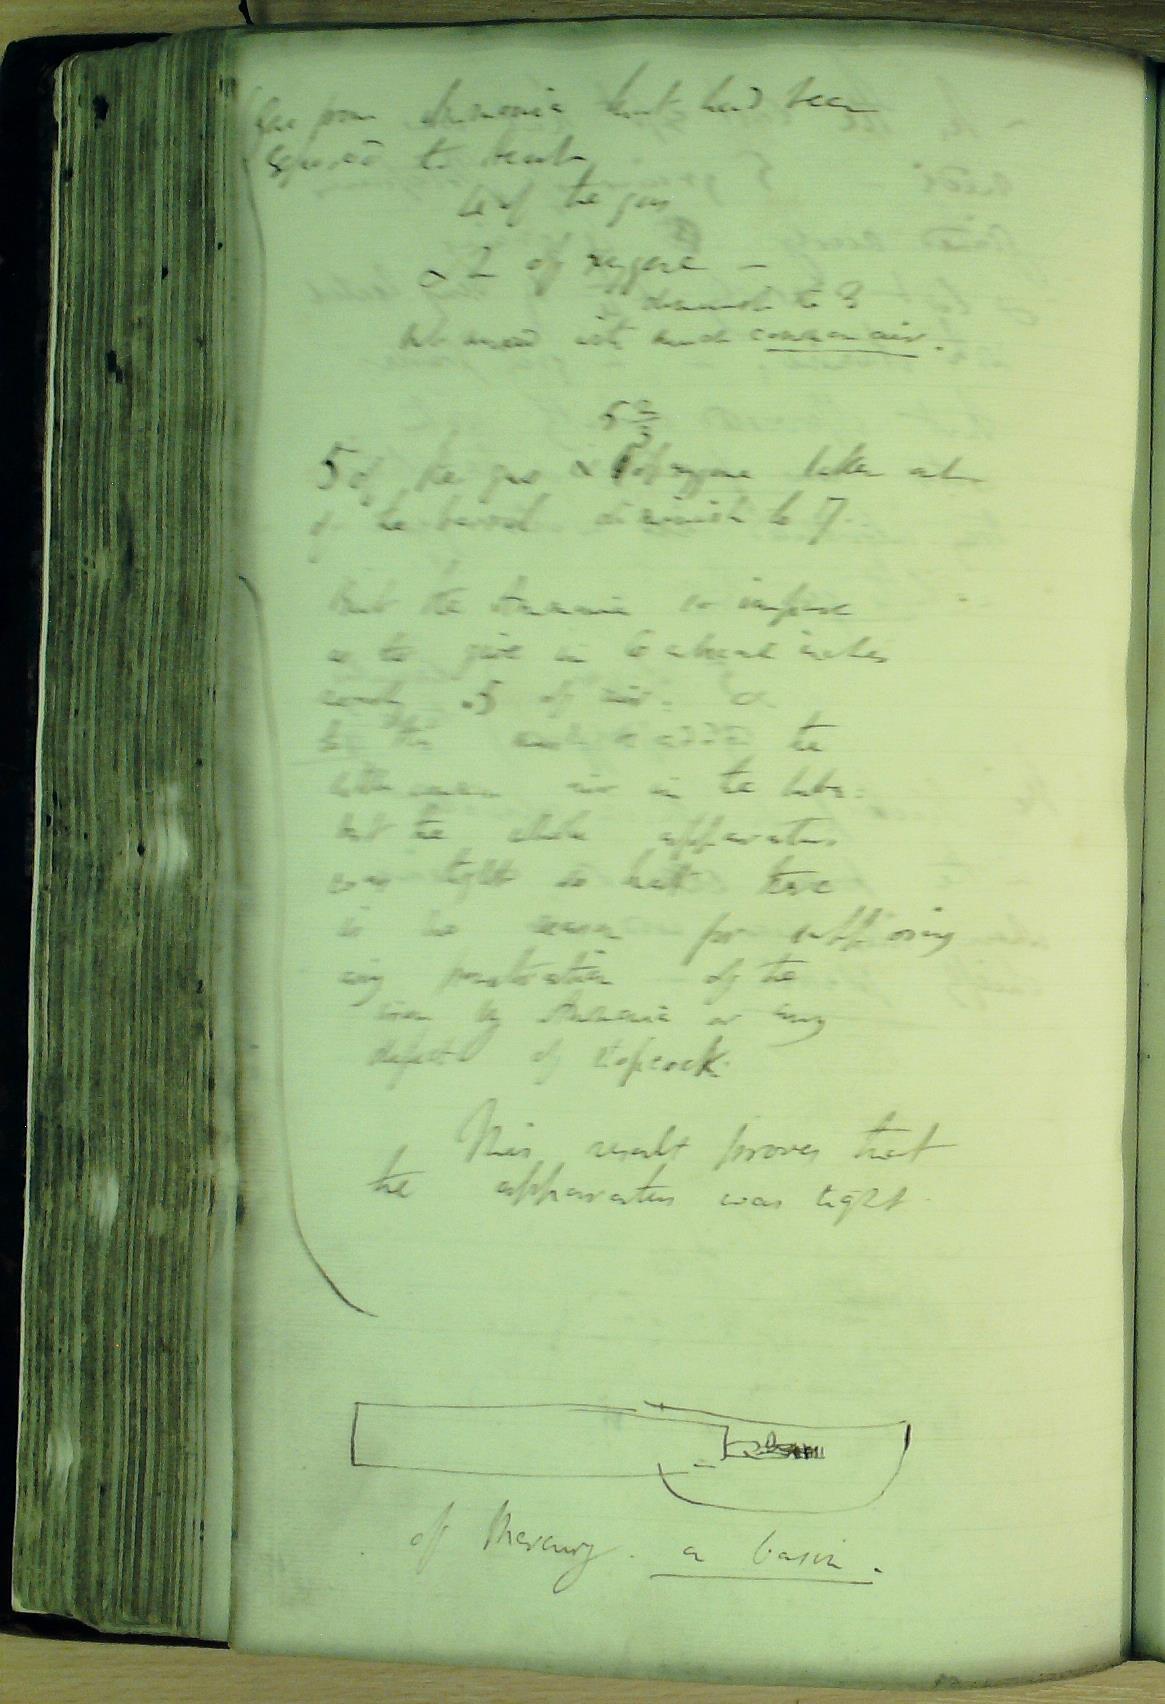 Gas from Ammonia that had been
exposed to heat
4 of the gas
2 of oxygene —
diminish to 3
but mixed with much common air.
5 2/3
5 of the gas & 1 of oxygene taken out
of the barrel diminish to 7
But the Ammonia so impure
as to give in 6 cubical inches
nearly .5 of air. &
to this must be added the
common air in the tube:
but the whole apparatus
was tight so that there
is no reason for supposing
any penetration of the
iron by Ammonia or any
defect of stopcock.
This result proves that
the apparatus was tight.
of Mercury. a basin.